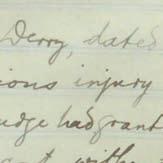 Derry, dated
ious injury
udge had grant